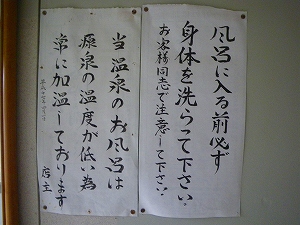 風呂に入る前必ず
身体を洗らって下さい。
お客様同志で注意して下さい。
当温泉のお風呂は
源泉の温度が低い為
常に加温しております
店主